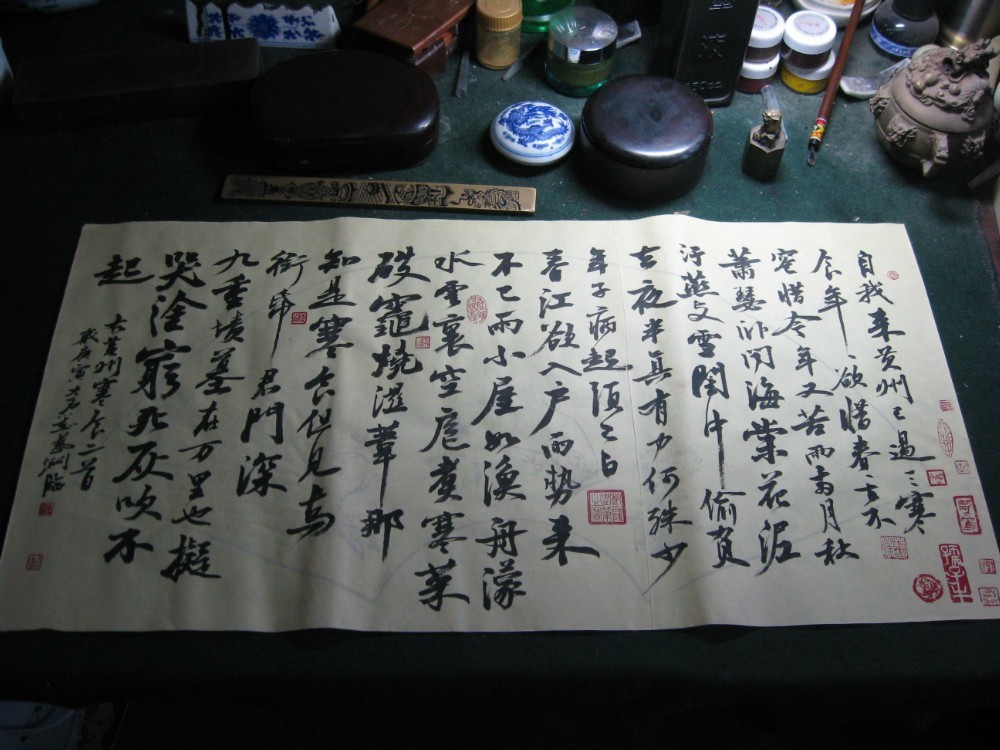 自我来黄州已過三寒
食年〻欲惜春〻去不
容惜今年又苦雨兩月秋
蕭瑟卧聞海棠花泥
汙燕支雪闇中偷負
去夜半真有力何殊少
年子病起頭已白
春江欲入户雨勢来
不已雨小屋如漁舟濛
水雲裏空庖煮寒菜
破竈燒濕葦那
知是寒食但見烏
銜帋君門深
九重墳墓在万里也擬
哭塗窮死灰吹不
起
右黄州寒食二首
歲庚寅